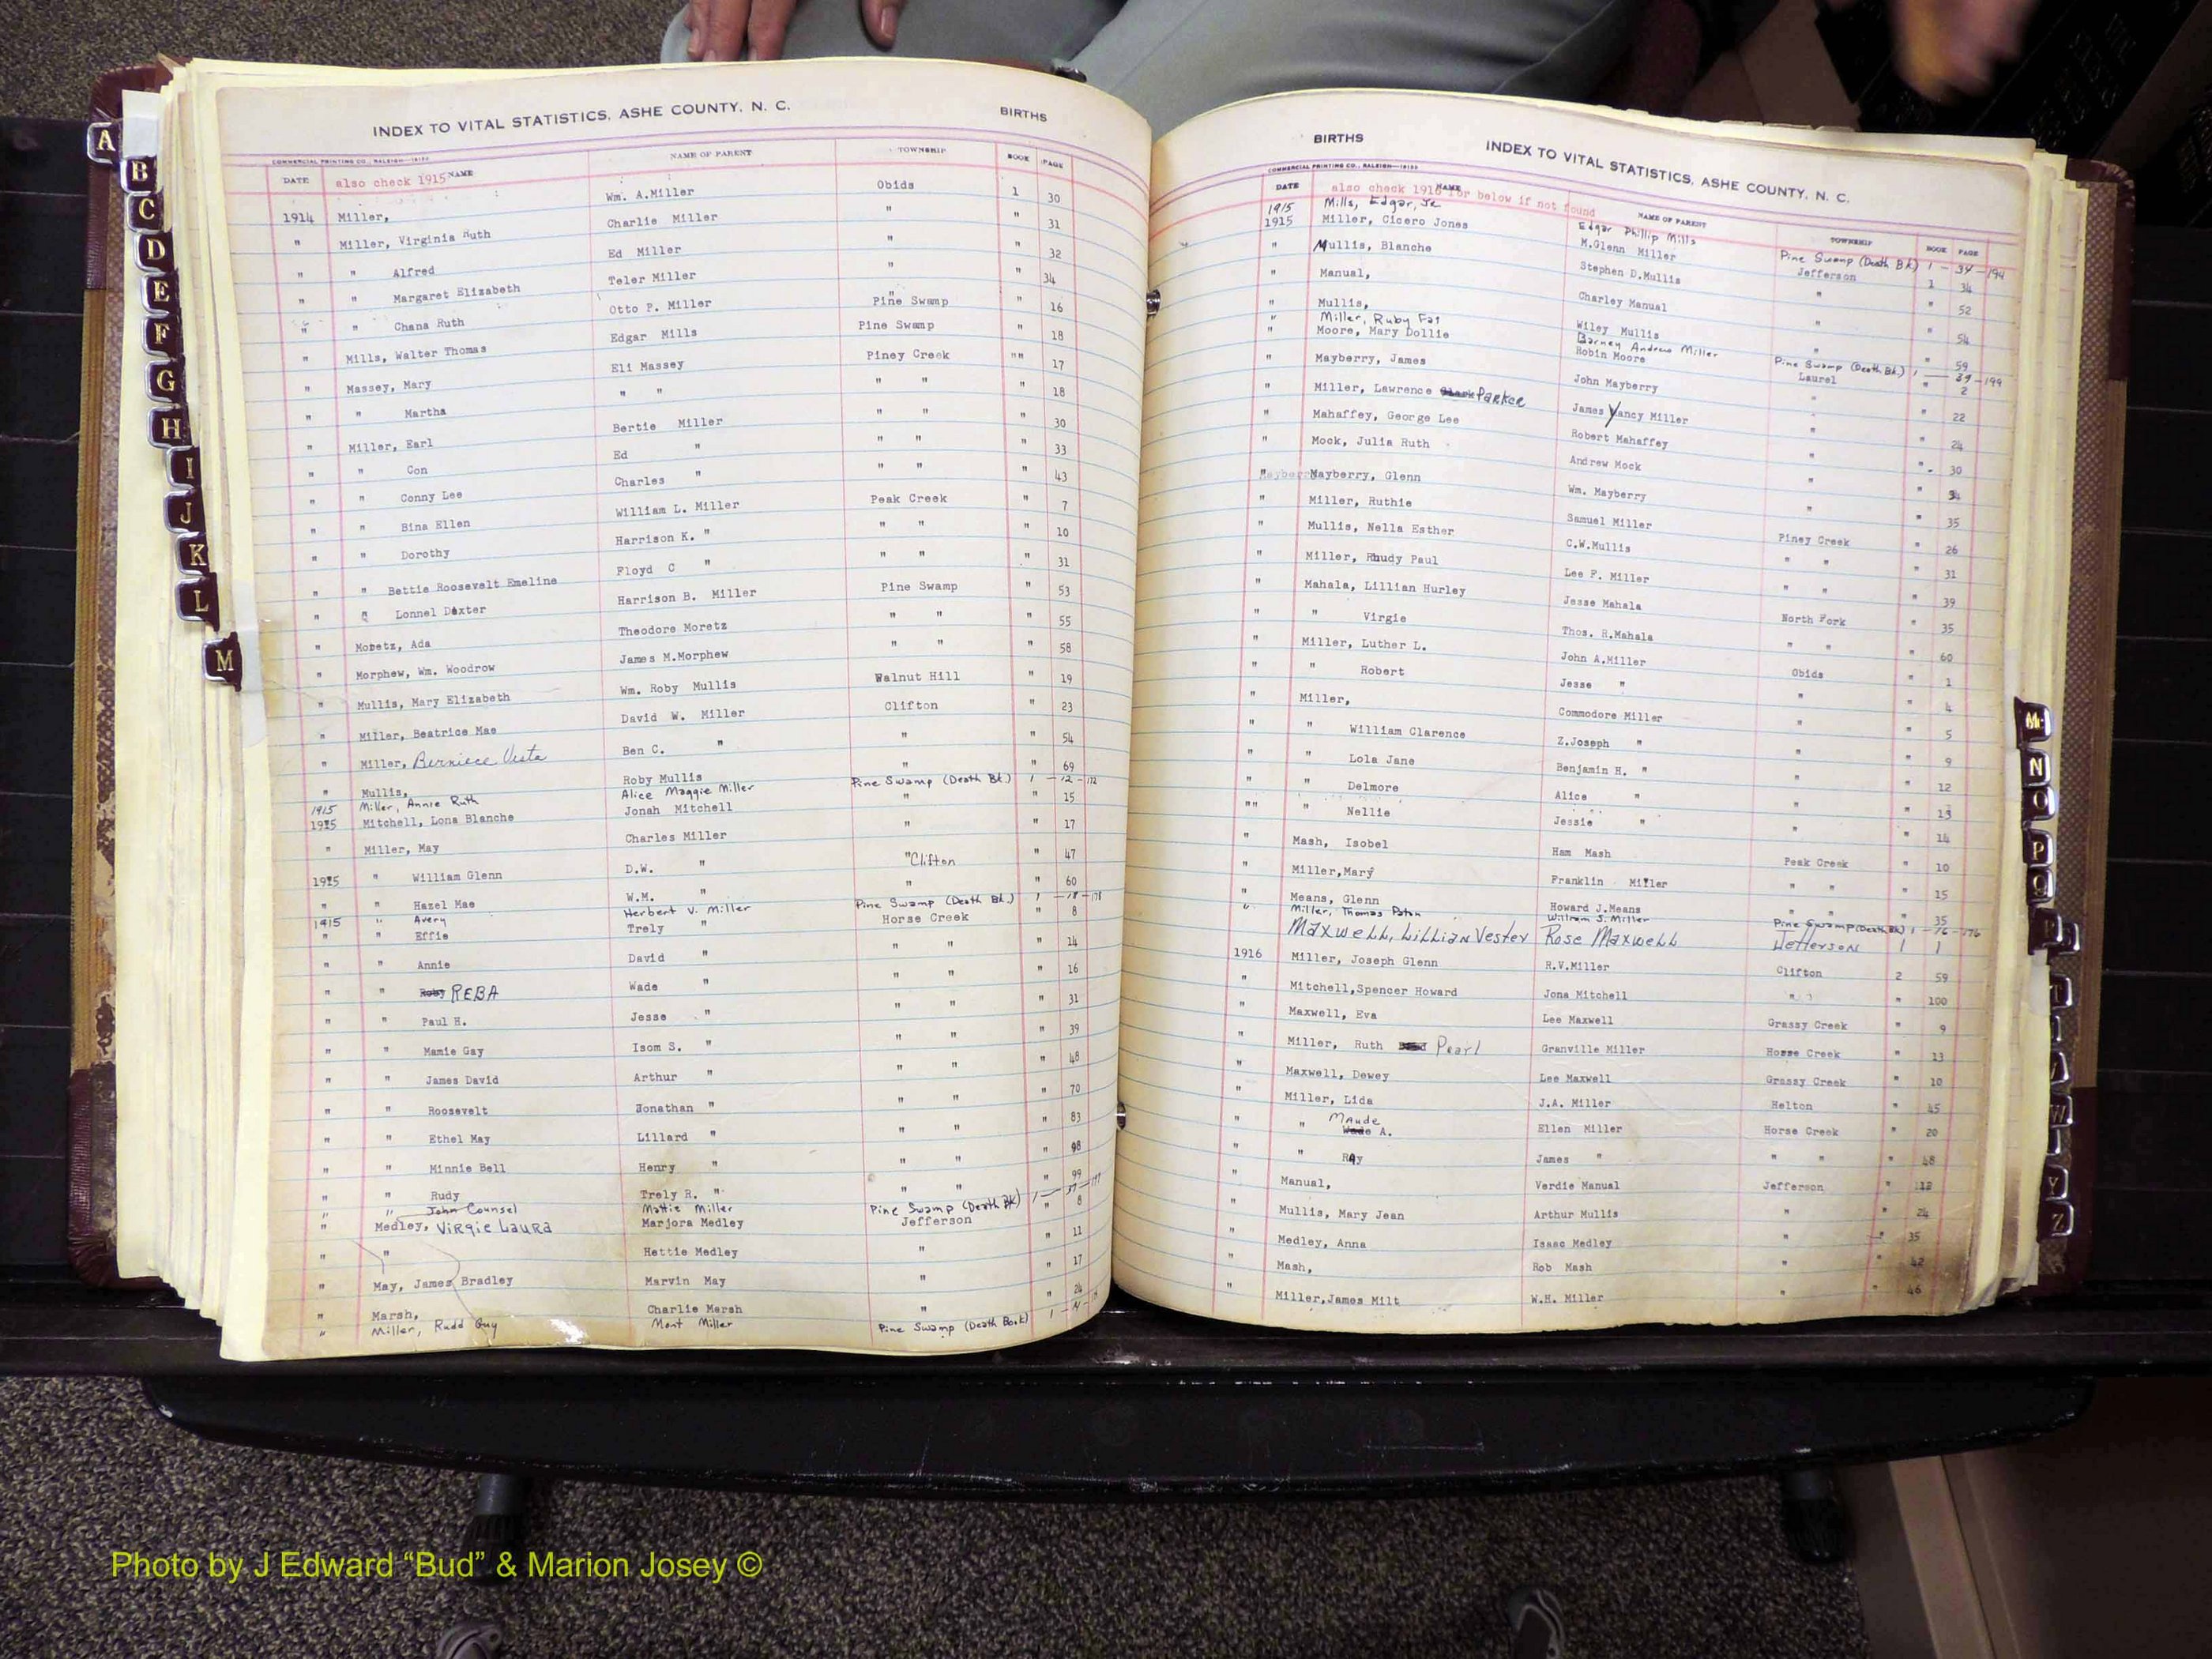 INDEX TO VITAL STATISTICS, ASHE COUNTY, N. C. BIRTHS
COMMERCIAL PRINTING CO., RALEIGH—19153
DATE also check 1915 NAME NAME OF PARENT TOWNSHIP BOOK PAGE
1914 Miller, Wm. A.Miller Obids 1 30
" Miller, Virginia Ruth Charlie Miller " " 31
" " Alfred Ed Miller " " 32
" " Margaret Elizabeth Teler Miller " " 34
" " Chana Ruth Otto P. Miller Pine Swamp " 16
" Mills, Walter Thomas Edgar Mills Pine Swamp " 18
" Massey, Mary Eli Massey Piney Creek "" 17
" " Martha " " " " " 18
" Miller, Earl Bertie Miller " " " 30
" " Con Ed " " " " 33
" " Conny Lee Charles " " " " 43
" " Bina Ellen William L. Miller Peak Creek " 7
" " Dorothy Harrison K. " " " " 10
" " Bettie Roosevelt Emeline Floyd C " " " " 31
" " Lonnel Dexter Harrison B. Miller Pine Swamp " 53
" Moretz, Ada Theodore Moretz " " " 55
" Morphew, Wm. Woodrow James M.Morphew " " " 58
" Mullis, Mary Elizabeth Wm. Roby Mullis Walnut Hill " 19
" Miller, Beatrice Mae David W. Miller Clifton " 23
" Miller, Berniece Vista Ben C. " " " 54
" Mullis, Roby Mullis " " 69
1915 Miller, Annie Ruth Alice Maggie Miller Pine Swamp (Death Bk.) 1 — 12 — 172
1915 Mitchell, Lona Blanche Jonah Mitchell " " 15
" Miller, May Charles Miller " " 17
1915 " William Glenn D.W. " " Clifton " 47
" " Hazel Mae W.M. " " " 60
1915 " Avery Herbert V. Miller Pine Swamp (Death Bk.) 1 — 18 — 178
" " Effie Trely " Horse Creek " 8
" " Annie David " " " " 14
" " REBA Wade " " " " 16
" " Paul H. Jesse " " " " 31
" " Mamie Gay Isom S. " " " " 39
" " James David Arthur " " " " 48
" " Roosevelt Jonathan " " " " 70
" " Ethel May Lillard " " " " 83
" " Minnie Bell Henry " " " " 98
" " Rudy Trely R. " " " " 99
" " John Counsel Mattie Miller Pine Swamp (Death Bk) 1 — 37 — 197
" Medley, Virgie Laura Marjora Medley Jefferson " 8
" " Hettie Medley " " 11
" May, James Bradley Marvin May " " 17
" Marsh, Charlie Marsh " " 24
" Miller, Rudd Guy Mont Miller Pine Swamp (Death Book) 1
BIRTHS INDEX TO VITAL STATISTICS, ASHE COUNTY, N. C.
COMMERCIAL PRINTING CO., RALEIGH—19153
DATE also check 1916 NAME for below if not found NAME OF PARENT TOWNSHIP BOOK PAGE
1915 Mills, Edgar, Jr Edgar Phillip Mills Pine Swamp (Death Bk) 1 — 34 — 194
1915 Miller, Cicero Jones M.Glenn Miller Jefferson 1 34
" Mullis, Blanche Stephen D.Mullis " " 52
" Manual, Charley Manual " " 54
" Mullis, Wiley Mullis " " 59
" Miller, Ruby Fay Barney Andrew Miller Pine Swamp (Death Bk.) 1 — 39 — 199
" Moore, Mary Dollie Robin Moore Laurel " 2
" Mayberry, James John Mayberry " " 22
" Miller, Lawrence Parker James Yancy Miller " " 24
" Mahaffey, George Lee Robert Mahaffey " " 30
" Mock, Julia Ruth Andrew Mock " " 34
" Mayberry, Glenn Wm. Mayberry " " 35
" Miller, Ruthie Samuel Miller Piney Creek " 26
" Mullis, Nella Esther C.W.Mullis " " " 31
" Miller, Rhudy Paul Lee F. Miller " " " 39
" Mahala, Lillian Hurley Jesse Mahala North Fork " 35
" " Virgie Thos. R.Mahala " " " 60
" Miller, Luther L. John A.Miller Obids " 1
" " Robert Jesse " " " 4
" Miller, Commodore Miller " " 5
" " William Clarence Z.Joseph " " " 9
" " Lola Jane Benjamin H. " " " 12
" " Delmore Alice " " " 13
"" " Nellie Jessie " " " 14
" Mash, Isobel Ham Mash Peak Creek " 10
" Miller,Mary Franklin Miller " " " 15
" Means, Glenn Howard J.Means " " " 35
" Miller, Thomas Paton William S. Miller Pine Swamp (Death Bk) 1 — 16 — 176
Maxwell, Lillian Vester Rose Maxwell Jefferson 1 1
1916 Miller, Joseph Glenn R.V.Miller Clifton 2 59
" Mitchell,Spencer Howard Jona Mitchell " " 100
" Maxwell, Eva Lee Maxwell Grassy Creek " 9
" Miller, Ruth Pearl Granville Miller Horse Creek " 13
" Maxwell, Dewey Lee Maxwell Grassy Creek " 10
" Miller, Lida J.A. Miller Helton " 45
" " Maude A. Ellen Miller Horse Creek " 20
" " Ray James " " " " 48
" Manual, Verdie Manual Jefferson " 12
" Mullis, Mary Jean Arthur Mullis " " 24
" Medley, Anna Isaac Medley " " 35
" Mash, Rob Mash " " 42
" Miller,James Milt W.H. Miller " " 46
A
B
C
D
E
F
G
H
I
J
K
L
M
Mc
N
O
P
Q
R
T
V
W
Y
Z
Photo by J Edward “Bud” & Marion Josey ©